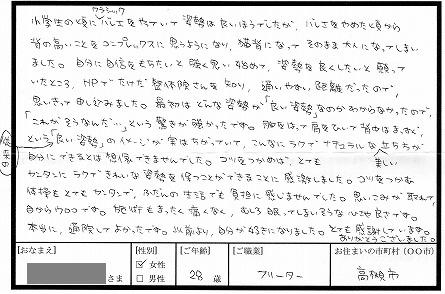 クラシック
小学生の頃にバレエをやっていて姿勢は良いほうでしたが、バレエをやめた頃から
背の高いことをコンプレックスに思うようになり、猫背になってそのまま大人になってしまい
ました。自分に自信をもちたいと強く思い始めて、姿勢を良くしたいと願って
いたところ、HPでたけだ整体院さんを知り、通いやすい距離だったので、
思いきって申し込みました。最初はどんな姿勢が「良い姿勢」なのかわからなかったので、
「これがそうなんだ…」という驚きが強かったです。胸をはって肩をひいて背中はまっすぐ、
という「良い姿勢」のイメージが実はちがっていて、こんなにラクでナチュラルな立ち方が
従来の
自分にできるとは想像できませんでした。コツをつかめば、とても 美しい
カンタンにラクできれいな姿勢を保つことができることに感激しました。コツをつかむ
体操もとてもカンタンで、ふだんの生活でも負担に感じませんでした。思いこみが取れて、
目からウロコです。施術もまったく痛くなく、むしろ眠ってしまいそうな心地良さです。
本当に、通院してよかったです。以前より、自分が好きになりました。とても感謝しています。
ありがとうございました。
【おなまえ】
さま
【性別】
☑ 女性
□ 男性
【ご年齢】
28 歳
【ご職業】
フリーター
【お住まいの市町村(○○市)】
高槻市